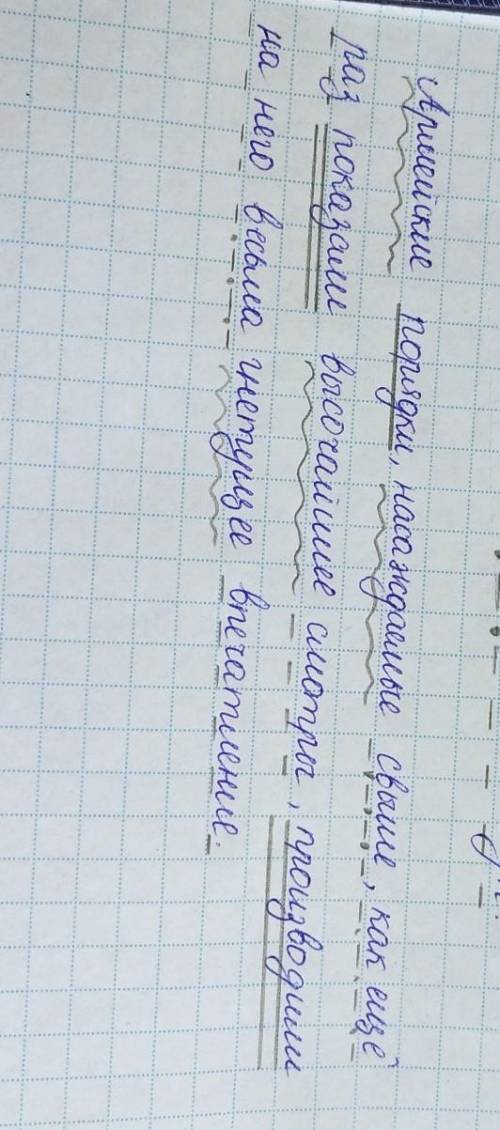 Армейские порядки, насаждаемые свыше, как ещё
раз показали высочайшие смотры, производили
на него весьма гнетущее впечатление.